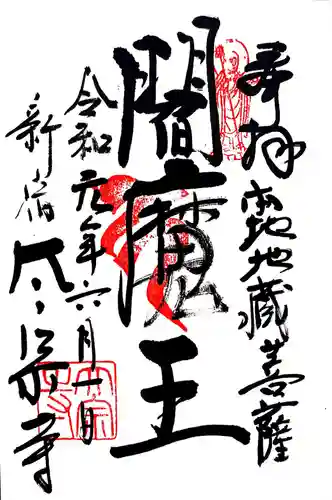 奉拝
本地地蔵菩薩
閻魔王
令和元年六月一日
新宿 太宗寺